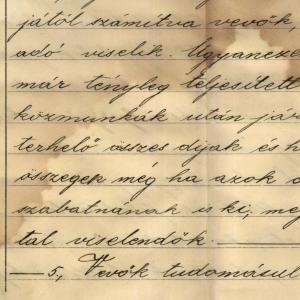 jától számítva vevők,
adó viselik. Ugyaneze
már tényleg teljesített
közmunkák után jár
terhelő összes dijak és h
összegek még ha azok c
szabatnának is ki, meg
tal viselendők.
— 5., Vevők tudomásul